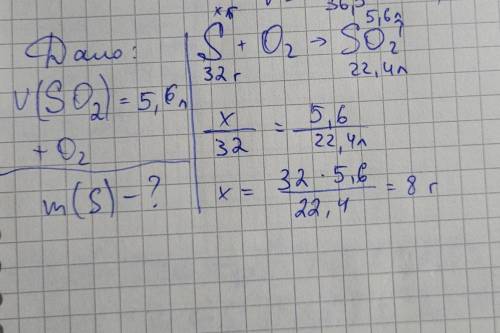 36,5
Дано:
V(SO₂) = 5,6л
+ O₂
m(S) - ?
xг 5,6л
S + O₂ → SO₂
32г 22,4л
x/32 = 5,6/22,4л
x = 32 · 5,6/22,4 = 8 г